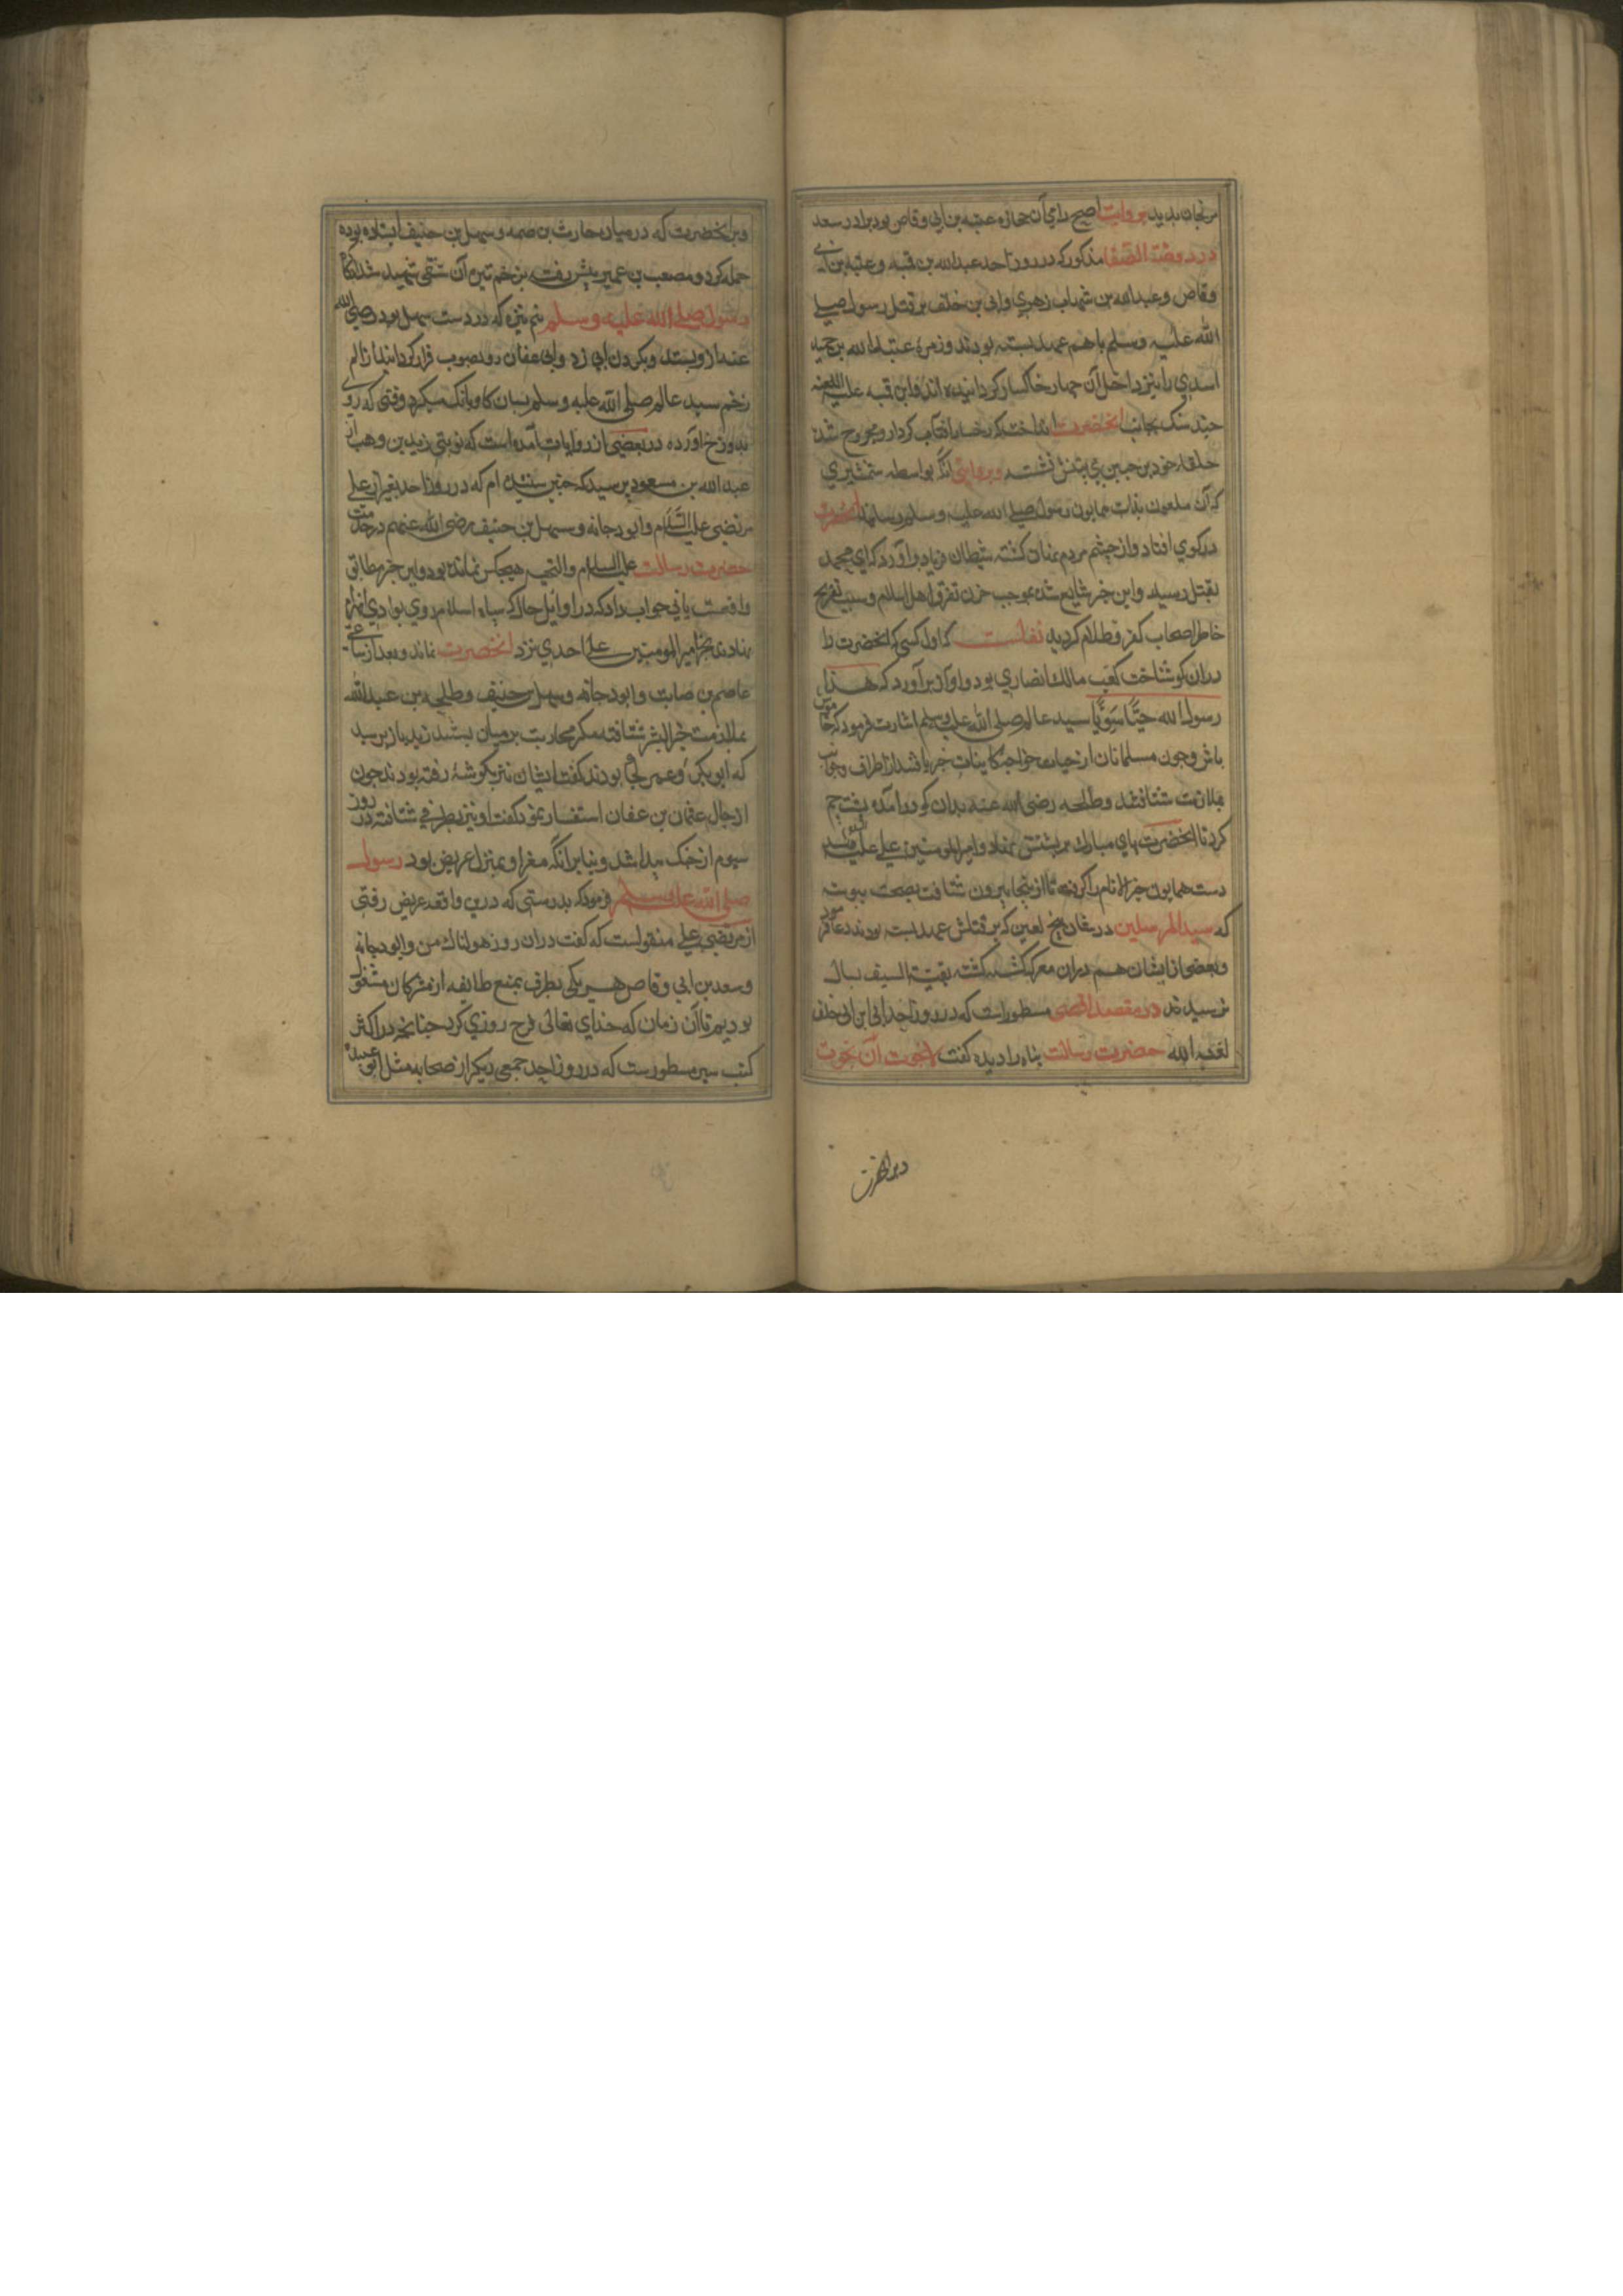 مرنجان بدید بروایت اصح رامی آن حجاره عتبه بن ابی وقاص بود برادر سعد
در روضة الصفا مذکور که در روز احد عبدالله بن قمیه و عتبه بن ابی
وقاص و عبدالله بن شهاب زهری و ابی بن خلف بر قتل رسول صلی
الله علیه وسلم باهم عهد بسته بودند و زمرهٔ عبدالله بن حمید
اسدی را نیز داخل آن چهار خاکسار کردانیده اند و ابن قمیه علیه اللعنه
چند سنک بجانب انحضرت انداخت که رخسار افتاب کردار مجروح شد
حلقه خود بر جبین نشست و بروایتی انکه بواسطه شمشیری
که آن ملعون بذات همایون رسول صلی الله علیه وسلم رسانید انحضرت
در کوی افتاد و از چشم مردم نهان کشته شیطان فریاد براورد که ای محمد
بقتل رسید و این خبر شایع شده موجب حزن تفرق اهل اسلام و سبب تفریح
خاطر اصحاب کفر و ظلام کردید نقلست که اول کسی که انحضرت را
دران کو شناخت کعب مالک انصاری بود و اواز برآورد که هذا
رسول الله حیّا سَوِیّا سید عالم صلی الله علیه وسلم اشارت فرمود که خاموش
باش و چون مسلمانان از حیات خواجهٔ کاینات خبر یافتند از اطراف و جوانب
بملازمت شتافتند و طلحه رضی الله عنه بدان کو درآمده پشت خم
کرد تا انحضرت پای مبارک بر پشتش نهاد و امیرالمومنین علی علیه
دست همایون خیر الانام را کرفته تا از پنجا بیرون شتافت بصحت پیوسته
که سید المرسلین در شان پنج لعین که بر قتلش عهد بسته بودند دعا فرمود
و بعضی از ایشان هم دران معرکه کشته کشته بقیة السیف بسال
نرسیدند در مقصد اقصی مسطور است که در روز احد ابی ابن ابی خلف
لعنه الله حضرت رسالت پناه را دیده کفت لانجوت ان نجوت
و بر انحضرت
و بر انحضرت که در میان حارث بن صمه و سهل بن حنیف ایستاده بوده
حمله کرد و مصعب بن عمیر پیش رفت بزخم تیره آن شقی شهید شد انکاه
رسول صلی الله علیه وسلم نیم نیزه که در دست سهل بود رضی الله
عنه ازو بستد و بکردن ابی زد و ابی عنان روبصوب فرار کردانید از الم
زخم سید عالم صلی الله علیه وسلم بسان کاو بانک میکرد وقتی که روی
بدوزخ اورده در بعضی از روایات آمده است که نوبتی زید بن وهب از
عبدالله بن مسعود پرسید که چنین شنیده ام که در روز احد بغیر از علی
مرتضی علیه السلام و ابو دجانه و سهل بن حنیف رضی الله عنهم در خدمت
حضرت رسالت علیه السلام والتحیه هیچکس نمانده بود و این خبر مطابق
واقعست یا نی جواب داد که در اوایل حال که سپاه اسلام روی بوادی انهزام
نهادند بجز امیرالمومنین علی احدی نزد انحضرت نماند و بعد از ساعتی
عاصم بن صابت و ابو دجانه و سهل بن حنیف و طلحه بن عبدالله
بملازمت خیر البشر شتافته کمر محاربت بر میان بستند زید باز پرسید
که ابو بکر و عمر کجا بودند کفت ایشان نیز بکوشهٔ رفته بودند چون
از حال عثمان بن عفان استفسار نمود کفت او نیز بطرفی شتافته در روز
سیوم از جنک پیدا شد و بنا بر انکه مفر او بمنزل عریض بود رسول
صلی الله علیه وسلم فرمود که بدرستی که درین واقعه عریض رفتی
از مرتضی علی منقولست که کفت دران روز هولناک من و ابو دجانه
و سعد بن ابی وقاص هر یکی بطرف بمنع طایفه از مشرکان مشغول
بودیم تا آن زمان که خدای تعالی فرح روزی کرد چنانچه در اکثر
کتب سیر مسطور ست که در روز احد جمعی دیکر از صحابه مثل ابو عبیده